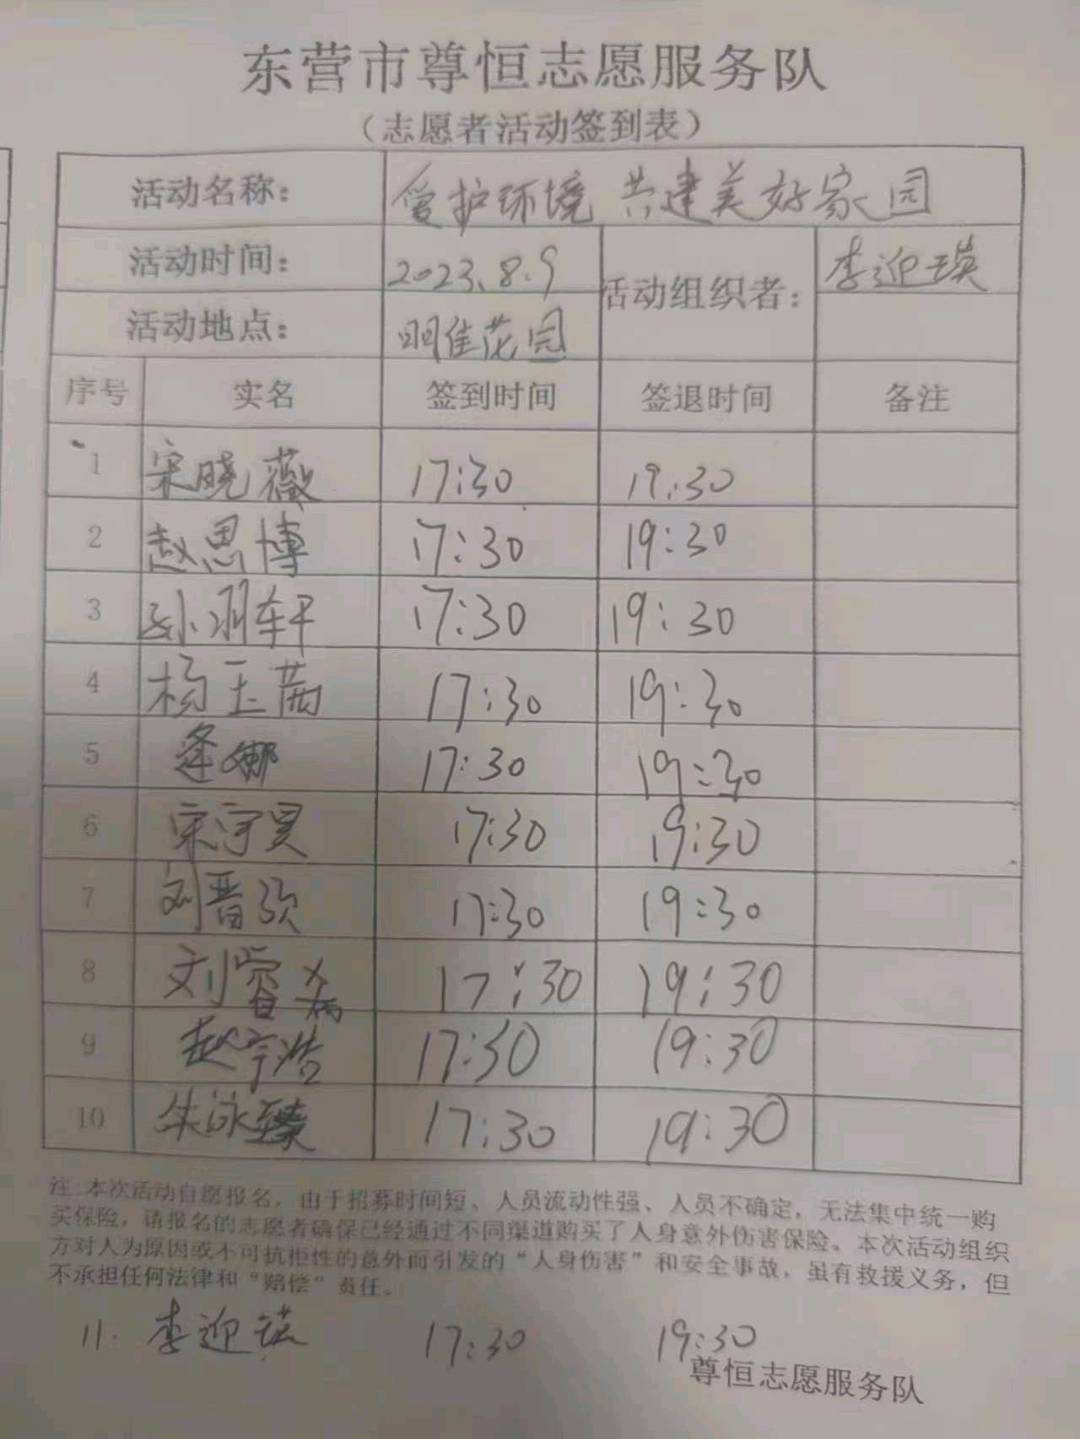 东营市尊恒志愿服务队
（志愿者活动签到表）
活动名称： 爱护环境 共建美好家园
活动时间： 2023.8.9 活动组织者： 李迎瑛
活动地点： 明佳花园
序号 实名 签到时间 签退时间 备注
1 宋晓薇 17:30 19:30
2 赵思博 17:30 19:30
3 孙羽轩 17:30 19:30
4 杨玉茜 17:30 19:30
5 逄娜 17:30 19:30
6 宋宇昊 17:30 19:30
7 刘晋 17:30 19:30
8 刘睿 17:30 19:30
9 赵宇浩 17:30 19:30
10 朱泳臻 17:30 19:30
注:本次活动自愿报名，由于招募时间短、人员流动性强、人员不确定，无法集中统一购
买保险，请报名的志愿者确保已经通过不同渠道购买了人身意外伤害保险。本次活动组织
方对人为原因或不可抗拒性的意外而引发的“人身伤害”和安全事故，虽有救援义务，但
不承担任何法律和“赔偿”责任。
11. 李迎瑛 17:30 19:30
尊恒志愿服务队